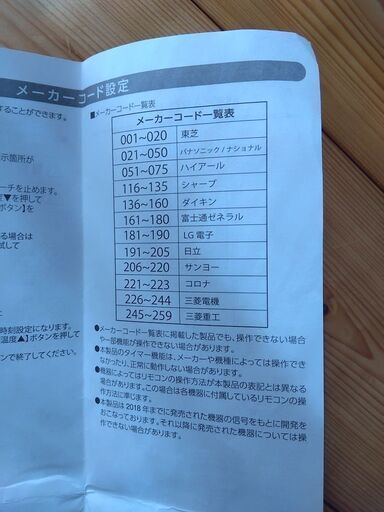 メーカーコード設定
することができます。
示箇所が
ーチを止めます。
度▼を押して
ボタン】を
る場合は
試して
時刻設定になります。
温度▲】ボタンを押して
ンで終了してください。
■メーカーコード一覧表
メーカーコード一覧表
001~020 東芝
021~050 パナソニック/ナショナル
051~075 ハイアール
116~135 シャープ
136~160 ダイキン
161~180 富士通ゼネラル
181~190 LG電子
191~205 日立
206~220 サンヨー
221~223 コロナ
226~244 三菱電機
245~259 三菱重工
●メーカーコード一覧表に掲載した製品でも、操作できない場合
や一部機能が操作できない場合があります。
●本製品のタイマー機能は、メーカーや機種によっては操作でき
なかったり、正常に動作しない場合があります。
●機器によってはリモコンの操作方法が本製品の表記とは異なる
場合があります。この場合は各機器に付属しているリモコンの操
作方法に準じます。
●本製品は2018年までに発売された機器の信号をもとに開発を
おこなっております。それ以降に発売された機器については操
作できない場合があります。